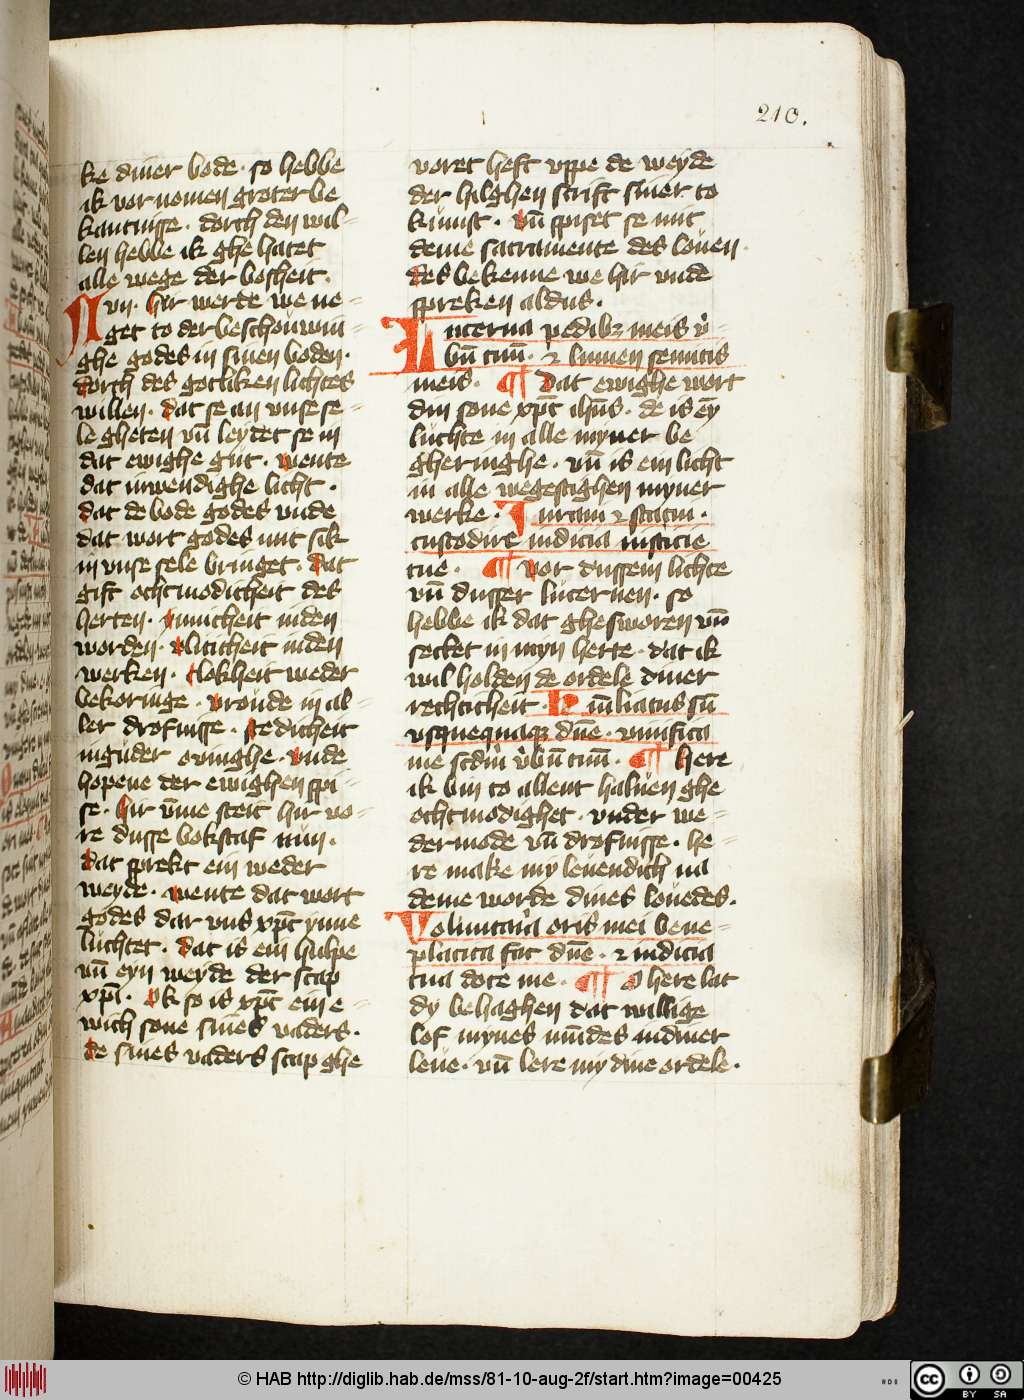 210.
ke diner bode · so hebbe
ik vornomen groter be
kantnisse · dorch den wil-
len hebbe ik ghe hatet
alle wege der bosheit ·
Nvn · hir werde we ne=
get to der beschouwin=
ghe godes in sinen boden ·
dorch des gotliken lichtes
willen · dat se an vnse se=
le gheten vn̄ leydet se in
dat ewighe gut · wente
dat inwendighe licht ·
dat de bode godes vnde
dat wort godes mit sik
in vnse sele bringet · dat
gift ochtmodicheit des
herten · innicheit in den
worden · vliticheit in den
werken · klokheit weder
bekoringe · vroude in al=
ler drofnisse ·
in guder ovinghe · vnde
hopene der ewighen spi=
se · hir v̄me steit hir vo=
re dusse bokstaf nun ·
dat sprekt ein weder
weyde · wente dat wort
godes dar vns xp̄c ynne
luchtet · dat is ein hulpe
vn̄ eyn weyde der scap
xp̄i · Ok so is xp̄c ein e=
wich sone sines vaders ·
de sines vaders scap ghe
voret heft vppe de weyde
der hilghen scrift siner to
kumst · vn̄ spiset se mit
deme sacramente des louen ·
des bekenne we hir vnde
spreken aldus ·
Lucerna pedibꝫ meis v̉=
bū tuū · ⁊ lumen semitis
meis · ¶ Dat ewighe wort
din sone xp̄c ih̄us · de is eȳ
luchte in alle myner be
gheringhe · vn̄ is ein licht
in alle wegestighen myner
werke · Iuraui ⁊ statui ·
custodire iudicia iusticie
tue · ¶ vor dussem lichte
vn̄ dusser lucernen · so
hebbe ik dat ghesworen vn̄
settet in myn herte · dat ik
wil holden de ordele diner
rechticheit · Humiliatus sū
vsquequaqꝫ dn̄e · viuifica
me scd̄m v̉bū tuū · ¶ Here
ik bin to allent haluen ghe
ochtmodighet · vnder we=
dermode vn̄ drofnisse · he=
re make my leuendich na
deme worde dines louedes ·
Voluntaria oris mei bene=
placita fac dn̄e · ⁊ iudicia
tua doce me · ¶ O here lat
dy behaghen dat willige
lof mynes mūdes in diner
leue · vn̄ lere my dine ordele ·
© HAB http://diglib.hab.de/mss/81-10-aug-2f/start.htm?image=00425
cc
BY SA